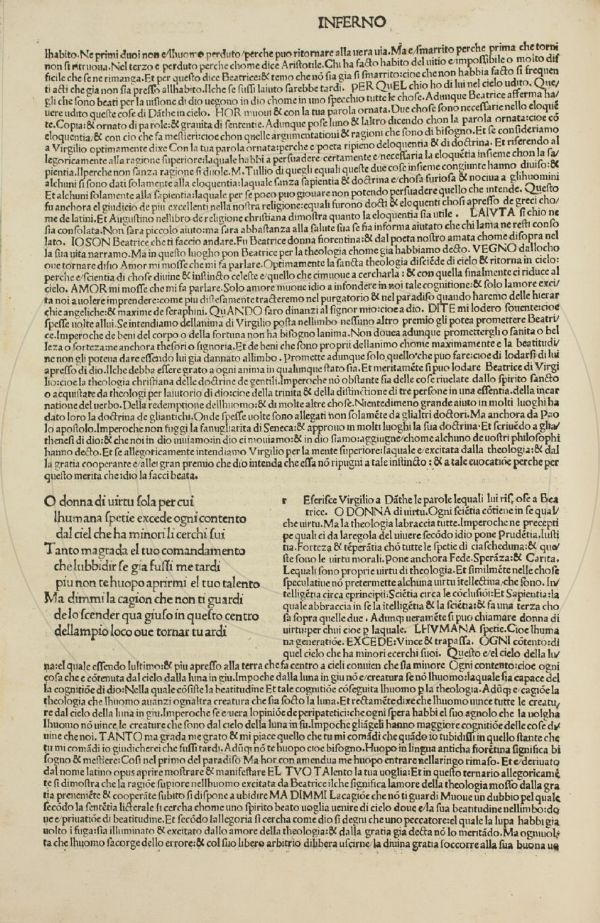 INFERNO
lhabito. Ne primi duoi non e/lhuomo perduto/perche puo ritornare alla uera uia. Ma e/smarrito perche prima che torni
non si ritruoua. Nel terzo e perduto perche chome dice Aristotile. Chi ha facto habito del uitio e/impossibile o molto dif
ficile che se ne rimanga. Et per questo dice Beatrice:& temo chē nō sia gia si smarrito:cioe che non habbia facto si frequen
ti acti che gia non sia presso allhabito. Ilche se fussi laiuto sarebbe tardi. PER QVEL chio ho di lui nel cielo udito. Que/
gli che sono beati per la uisione di dio uegono in dio chome in uno specchio tutte le chose. Adunque Beatrice afferma ha/
uere udito queste cose di Dāthe in cielo. HOR muoui & con la tua parola ornata. Due chose sono necessarie nello eloquē
te. Copia:& ornato di parole:& grauita di sententie. Adunque pose luno & laltro dicendo chon la parola ornata:cioe cō
eloquentia:& con cio che fa mestieri:cioe chon quelle argumentationi & ragioni che sono di bisogno. Et se consideriamo
a Virgilio optimamente dixe Con la tua parola ornata:perche e/poeta ripieno deloquentia & di doctrina. Et riferendo al
legoricamente alla ragione superiore:laquale habbi a persuadere certamente e/necessaria la eloquētia insieme chon la sa/
pientia. Ilperche non sanza ragione si duole. M. Tullio di quegli equali queste due cose insieme congiunte hanno diuiso.
alchuni si sono dati solamente alla eloquentia:laquale sanza sapientia & doctrina e/chosa furiosa & nociua a glihuomini
Et alchuni solamente alla sapientia:laquale per se poco puo giouare non potendo persuadere quello che intende. Questo
fu anchora el giudicio de piu excellenti nella nostra religione:equali furono docti & eloquenti chosi apresso de greci cho/
me de latini. Et Augustino nellibro de religione christiana dimostra quanto la eloquentia sia utile. LAIVTA si chio ne
sia consolata. Non sara piccolo aiuto:ma sara abbastanza alla salute sua se fia informa aiutato che chi lama ne resti conso
lato. IO SON Beatrice che ti faccio andare. Fu Beatrice donna fiorentina:& dal poeta nostro amata chome disopra nel
la sua uita narramo. Ma in questo luogho pon Beatrice per la theologia chome gia habbiamo decto. VEGNO dallocho
oue tornare disio Amor mi mosse che mi fa parlare. Optimamente la sancta theologia disciēde di cielo & ritorna in cielo:
perche e/scientia di chose diuine & instincto celeste e/quello che cimuoue a cercharla: & con quella finalmente ci riduce al
cielo. AMOR mi mosse che mi fa parlare. Solo amore muoue idio a infondere in noi tale cognitione:& solo lamore exci/
ta noi a uolere imprendere:come piu distesamente tracteremo nel purgatorio & nel paradiso quando haremo delle hierar
chie angeliche:& maxime de seraphini. QVANDO saro dinanzi al signor mio:cioe a dio. DI TE mi lodero souente:cioe
spesse uolte allui. Se intendiamo dellanima di Virgilio posta nellimbo nessuno altro premio gli potea promettere Beatri/
ce. Imperoche de beni del corpo o della fortuna non ha bisogno lanima. Non douea adunque promettergli o sanita o bel
leza o forteza:ne anchora thesori o signoria. Et de beni che sono proprii dellanimo chome maximamente e la beatitudi/
ne non gli potena dare essendo lui gia dannato allimbo. Promette adunque solo quello che puo fare:cioe di lodarsi di lui
apresso di dio. Ilche debba essere grato a ogni anima in qualunque stato sia. Et meritamēte si puo lodare Beatrice di Virgi
lio:cioe la theologia christiana delle doctrine de gentili. Imperoche nō obstante sia delle cose riuelate dallo spirito sancto
o acquistate da theologi per laiutorio di dio:cioe della trinita & della distinctione di tre persone in una essentia. della incar
natione del uerbo. Della redemptione dellhuomo:& di molte altre chose. Nientedimeno grande aiuto in molti luoghi ha
dato loro la doctrina de gliantichi. Onde spesse uolte sono allegati non solamēte da glialtri doctori. Ma anchora da Pao
lo apostolo. Imperoche non fuggi la famigliarita di Seneca:& approuo in molti luoghi la sua doctrina. Et scriuēdo a glia/
thenesi di dio:& che noi in dio uiuiamo:in dio ci mouiamo:& in dio siamo:aggiugne/chome alchuno de uostri philosophi
hanno decto. Et se allegoricamente intendiamo Virgilio per la mente superiore:laquale e/excitata dalla theologia:& dal
la gratia cooperante e/allei gran premio che dio intenda che essa nō ripugni a tale instincto: & a tale euocatiōe perche per
questo merita che idio la facci beata.
O donna di uirtu sola per cui
lhumana spetie excede ogni contento
dal ciel che ha minori li cerchi sui
Tanto magrada el tuo comandamento
che lubbidir se gia fussi me tardi
piu non te huopo aprirmi el tuo talento
Ma dimmi la cagion che non ti guardi
de lo scender qua giuso in questo centro
dellampio loco oue tornar tu ardi
r Eferisce Virgilio a Dāthe le parole lequali lui rispose a Bea
trice. O DONNA di uirtu. Ogni sciētia cōtiene in se qual/
che uirtu. Ma la theologia labraccia tutte. Imperoche ne precepti
pe quali ci da laregola del uiuere secōdo idio pone Prudētia. Iusti
tia. Forteza & tēperātia chō tutte le spetie di ciascheduna:& que/
ste sono le uirtu morali. Pone anchora Fede. Sperāza:& Carita.
Lequali sono proprie uirtu di theologia. Et similmēte nelle chose
speculatiue nō pretermette alchuna uirtu itellectiua,che sono. In/
telligētia circa eprincipii:Sciētia circa le cōclusioi:Et Sapientia:la
quale abbraccia in se la itelligētia & la sciētia:& fa una terza cho
sa sopra quelle due. Adunqu ueramēte si puo chiamare donna di
uirtu:per chui cioe p laquale. LHVMANA spetie. Cioe lhuma
na generatiōe. EXCEDE:Vince & trapassa. OGNI cōtento:di
quel cielo che ha minori cerchi suoi. Questo e/el cielo della lu/
na:el quale essendo lultimo:& piu apresso alla terra che fa centro a cieli conuien che sia minore Ogni contento:cioe ogni
cosa che e cōtenuta dal cielo dalla luna in giu. Impoche dalla luna in giu nō e/creatura se nō lhuomo:laquale sia capace del
la cognitiōe di dio:Nella quale cōsiste la beatitudine Et tale cognitiōe cōseguita lhuomo p la theologia. Adūq; e/cagiōe la
theologia che lhuomo auanzi ognaltra creatura che sia socto la luna. Et rectamēte dixe che lhuomo uince tutte le creatu/
re dal cielo della luna in giu. Imperoche se e uera lopinione de peripatetici:che ogni spera habbi el suo agnolo che la uolgha
lhuomo nō uince le creature che sono dal cielo della luna in su. Impoche gliāgeli hanno maggiore cognitiōe delle cose di/
uine che noi. TANTO ma grada me grato & mi piace quello che tu mi comādi che quādo io tubidissi in quello stante che
tu mi comādi io giudicherei che fussi tardi. Adūq; nō te huopo cioe bisogno. Huopo in lingua anticha fiorētina significa bi
sogno & mestiere:Cosi nel primo del paradiso Ma hor con amendua me huopo entrare nellaringo rimaso. Et e/deriuato
dal nome latino opus aprire mostrare & manifestare EL TVO TAlento la tua uoglia:Et in questo ternario allegoricamē
te si dimostra che la ragiōe supiore nellhuomo excitata da Beatrice ilche significa lamore della theologia mosso dalla gra
tia preueniēte & cooperāte subito si dispone a ubidire MA DIMMI La cagiōe che nō ti guardi Muoue un dubbio pel quale
secōdo la sentētia lictterale si cercha chome uno spirito beato uoglia uenire di cielo doue e/la sua beatitudine nellimbo:do
ue e/priuatiōe di beatitudine. Et secōdo lallegoria si cercha come dio si degni che uno peccatore:el quale la lupa habbi gia
uolto i fuga:sia illuminato & excitato dallo amore della theologia:& dalla gratia gia decta nō lo meritādo. Ma ogniuol/
ta che lhuomo sacorge dello errore:& col suo libero arbitrio dilibera uscirne la diuina gratia soccorre alla sua buona uo